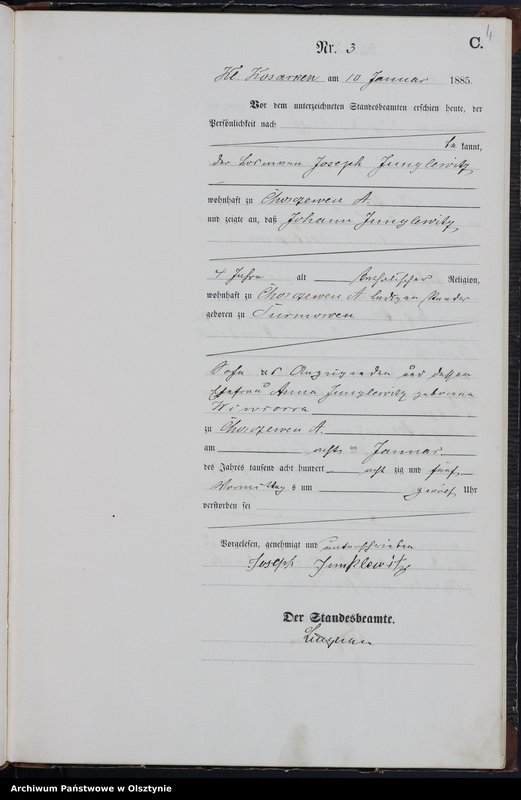 4
Nr. 3 C.
Kl Kosarken am 10 Januar 1885.
Vor dem unterzeichneten Standesbeamten erschien heute, der
Persönlichkeit nach
be kannt,
der Losmann Joseph Junglewitz
wohnhaft zu Chorzewen A.
und zeigte an, daß Johann Junglewitz
4 Jahre alt katholischer Religion,
wohnhaft zu Chorzewen A ledigen Standes
geboren zu Surmowen
Sohn des Anzeigenden und dessen
Ehefrau Anna Junglewitz geborenen
Wiwiorra
zu Chorzewen A.
am acht ten Januar
des Jahres tausend acht hundert acht zig und fünf
Vormittag s um zwölf Uhr
verstorben sei
Vorgelesen, genehmigt und unterschrieben
Joseph Junklewitz
Der Standesbeamte.
Archiwum Państwowe w Olsztynie